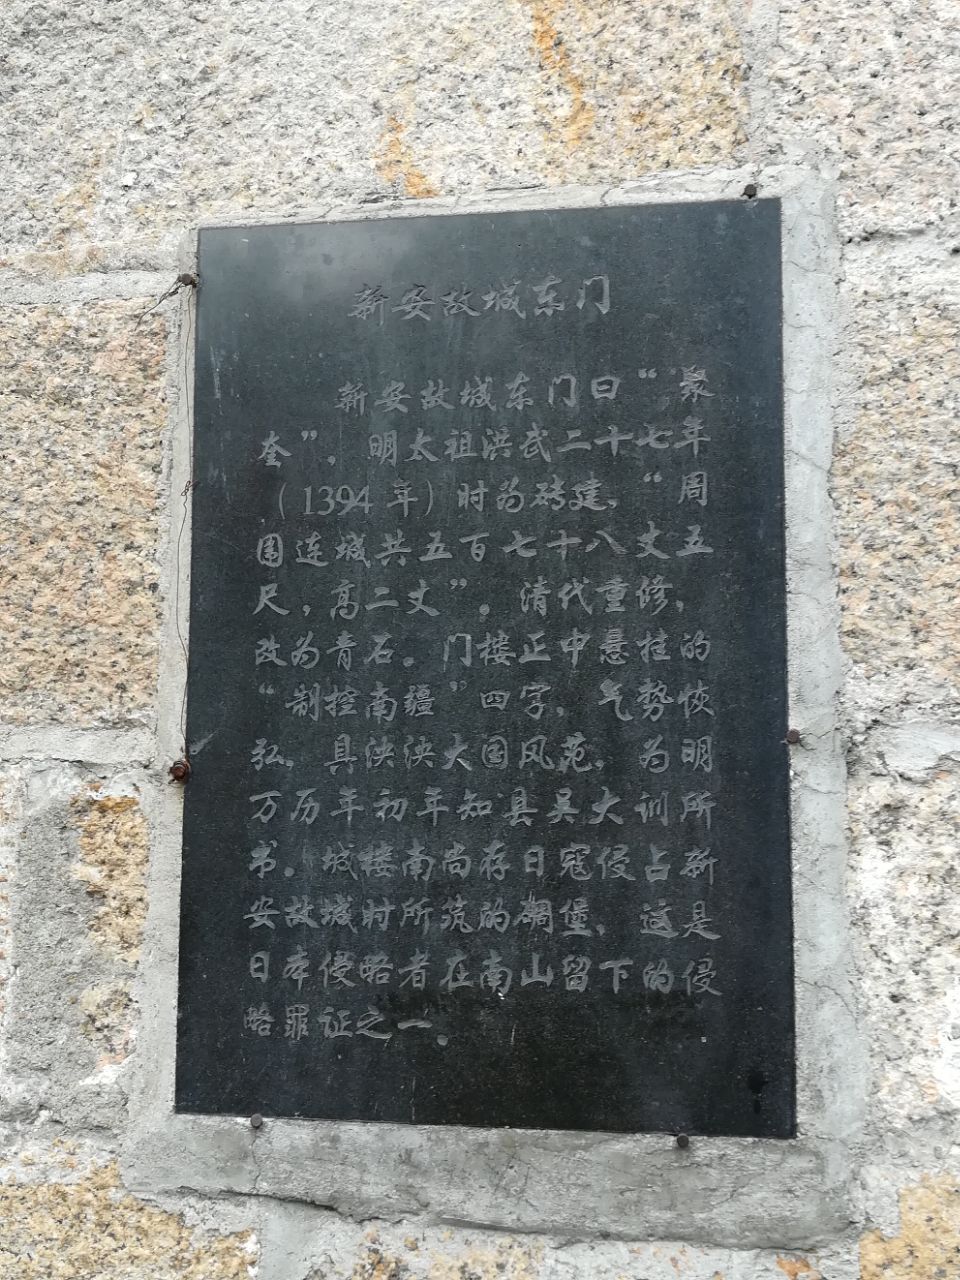 新安故城东门
新安故城东门曰“聚
奎”，明太祖洪武二十七年
（1394年）时为砖建，“周
围连城共五百七十八丈五
尺，高二丈”。清代重修，
改为青石。门楼正中悬挂的
“制控南疆”四字，气势恢
弘，具泱泱大国风范，为明
万历年初年知县吴大训所
书。城楼南尚存日寇侵占新
安故城时所筑的碉堡，这是
日本侵略者在南山留下的侵
略罪证之一。